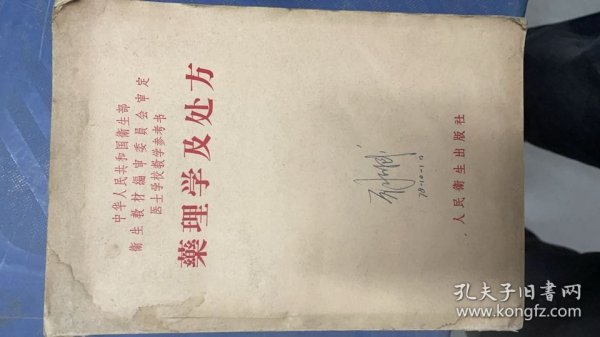 中华人民共和国衛生部
衛生教材編审委員会审定
医士学校教学参考书
藥理学及处方
78-10-10
人民衛生出版社
孔夫子旧書网
www.kongfz.com